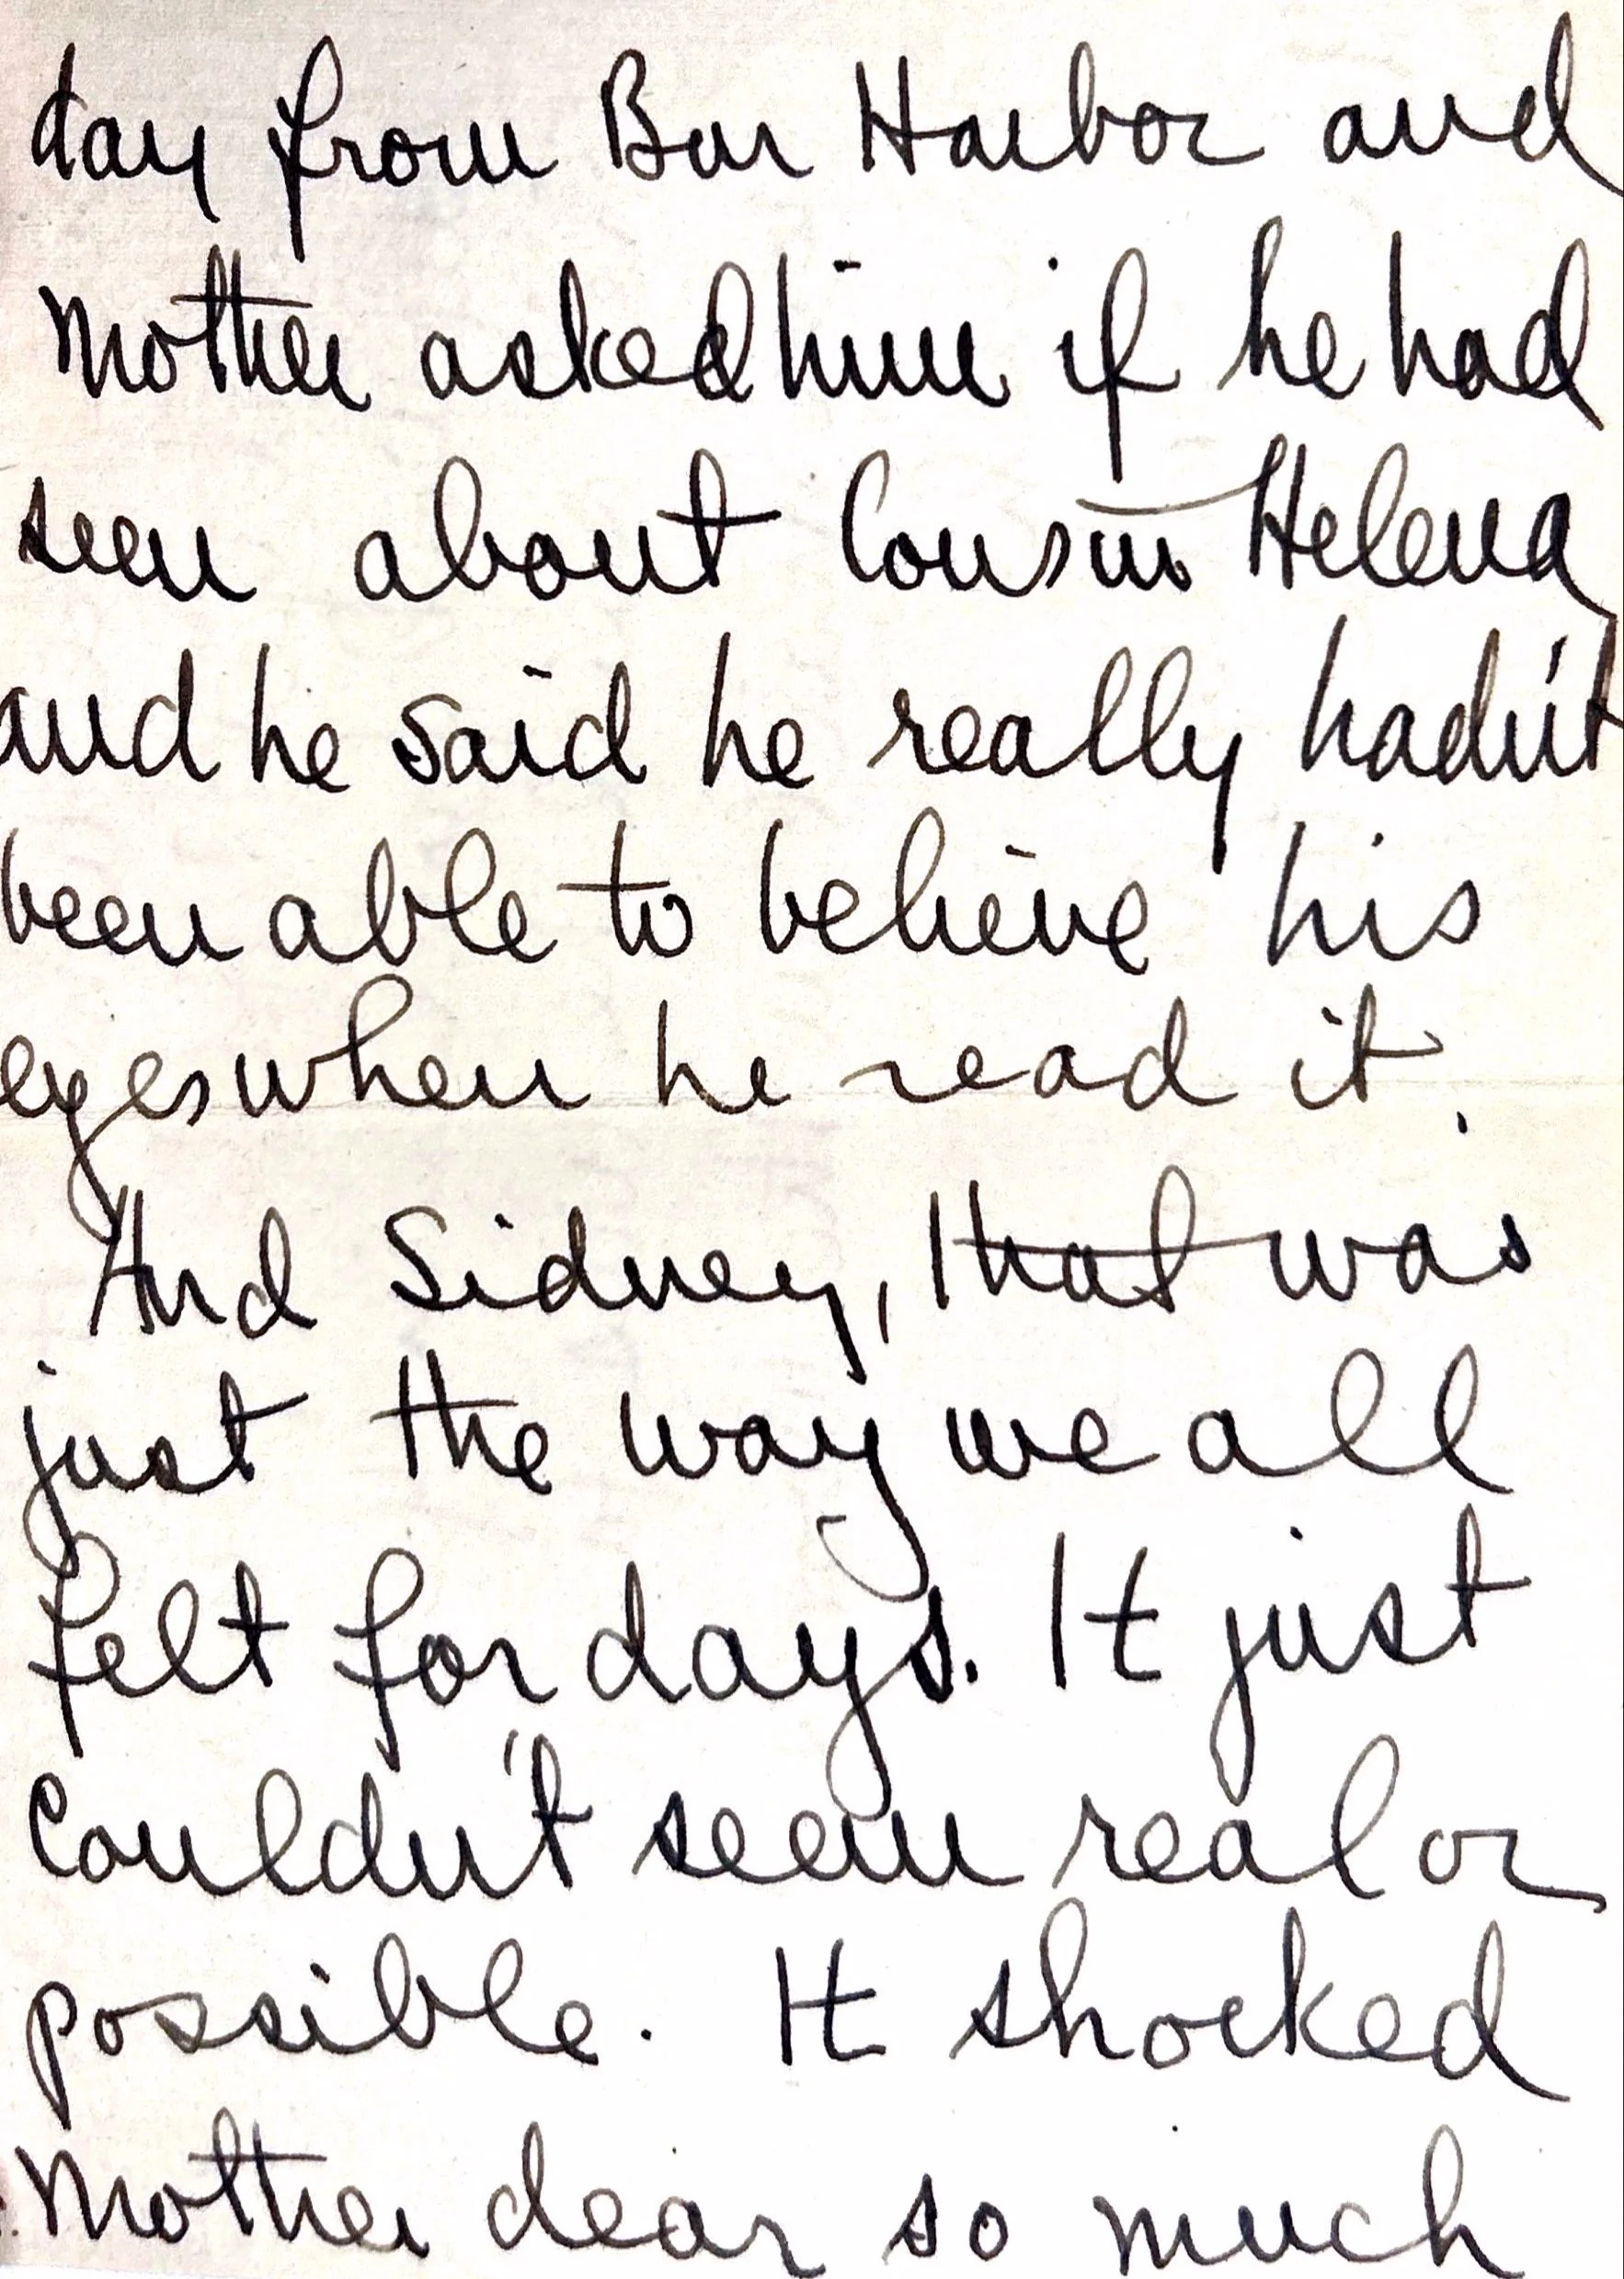 day from Bar Harbor and
Mother asked him if he had
seen about Cousin Helena
and he said he really hadn't
been able to believe his
eyes when he read it.
And Sidney, that was
just the way we all
felt for days. It just
couldn't seem real or
possible. It shocked
Mother dear so much